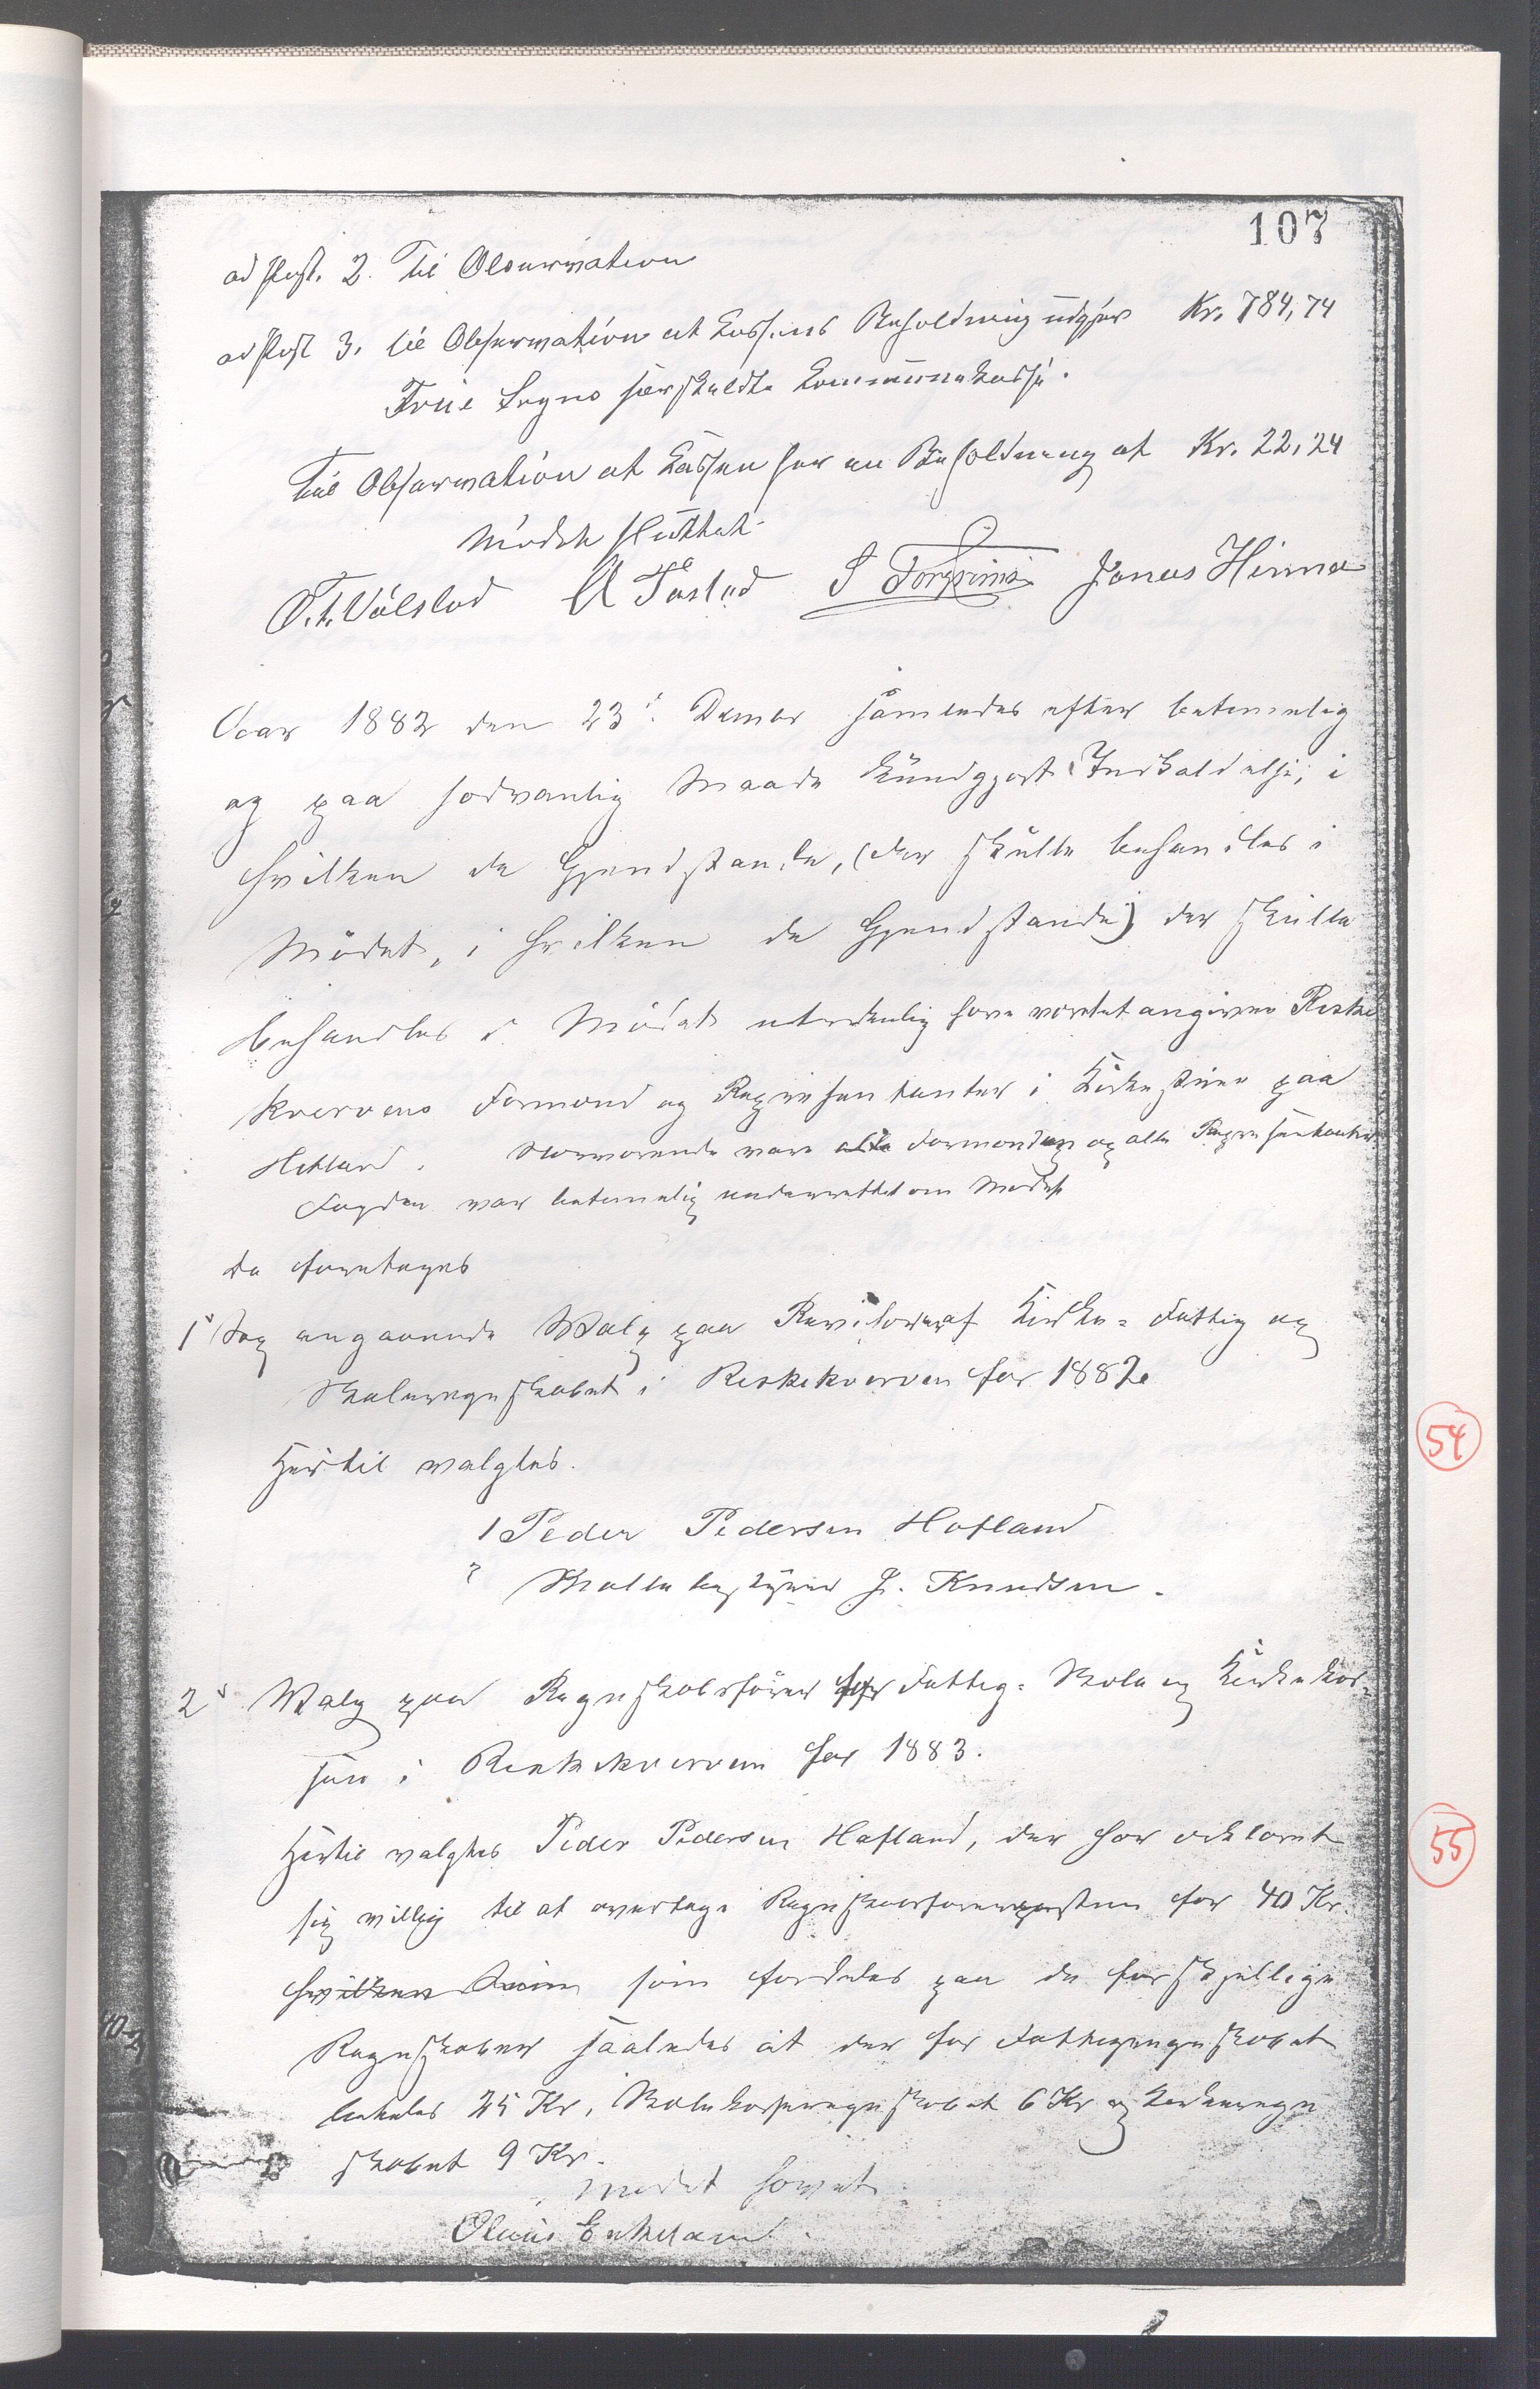 107
ad Post. 2. Til Observation
ad Post 3. til Observation at Kassens Beholdning udgjør Kr. 784,74
Frue Sogns særskildte Kommunekasse.
Til Observation at Kassen har en Beholdning af Kr. 22,24
Mødet sluttet
O. T. Vålstad A Tastad S Torgrims Jonas Hinna
Aar 1882 den 23de December samledes efter betimelig
og paa sedvanlig Maade kundgjort Indkaldelse, i
hvilken de Gjendstande, (der skulle behandles i
Mødet, i hvilken de Gjendstande) der skulle
behandles i Mødet udtrykkelig have vordet angivne Riske
kvervens Formænd og Repræsentanter i Kirkestuen paa
Hetland. Nærværende vare alle Formænd og alle Repræsentanter
Fogden var betimelig underrettet om Mødet
Da foretoges
1o Sag angaaende Valg paa Revisorer af Kirke- Fattig og
Skoleregnskabet i Riskekverven for 1882
Hertil valgtes.
1 Peder Pedersen Hafland
2 Skolebestyrer J. Knudsen.
2o Valg paa Regnskabsfører for Fattig- Skole og Kirkekas-
sen i Riskekverven for 1883.
Hertil valgtes Peder Pedersen Hafland, der har erklæret
sig villig til at overtage Regnskabsførerposten for 40 Kr.
hvilken Sum som fordeles paa de forskjellige
Regnskaber saaledes at der for Fattigregnskabet
betales 25 Kr, Skolekasseregnskabet 6 Kr og Kirkeregn
skabet 9 Kr.
Mødet hævet
Oluus Enkeland
54
55